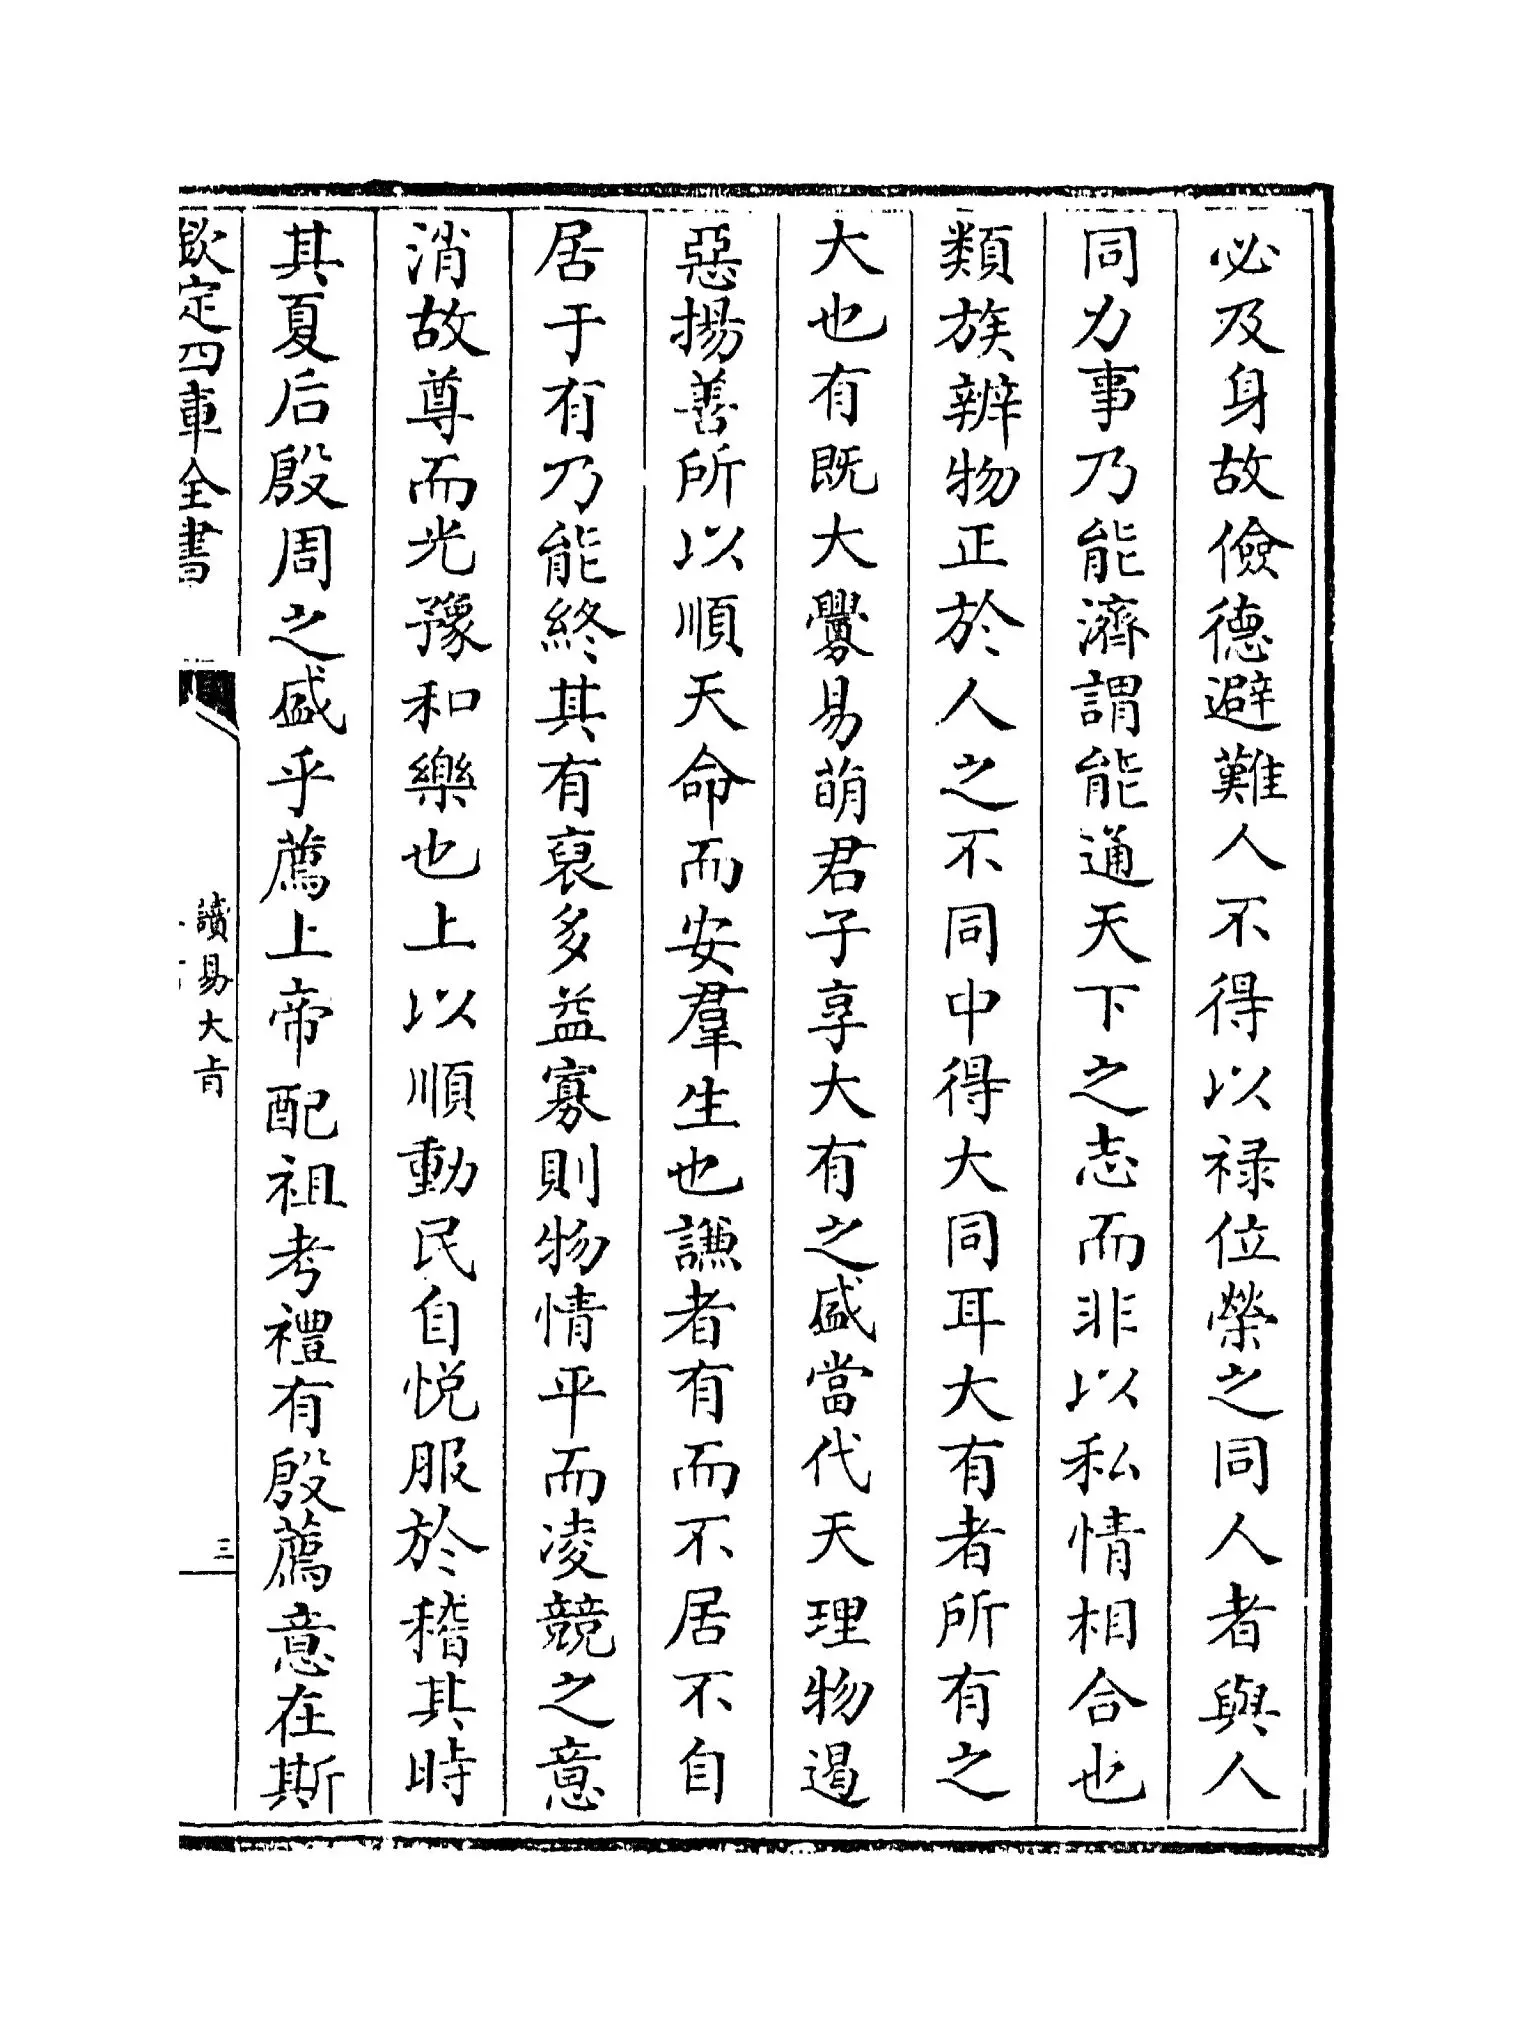 必及身故儉德避難人不得以禄位榮之同人者與人
同力事乃能濟謂能通天下之志而非以私情相合也
類族辨物正於人之不同中得大同耳大有者所有之
大也有既大釁易萌君子享大有之盛當代天理物遏
惡揚善所以順天命而安羣生也謙者有而不居不自
居于有乃能終其有裒多益寡則物情平而凌競之意
消故尊而光豫和樂也上以順動民自悦服於稽其時
其夏后殷周之盛乎薦上帝配祖考禮有殷薦意在斯
欽定四庫全書
讀易大旨
三